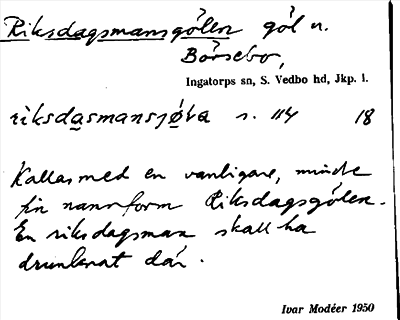 Riksdagsmansgölen göl n.
Börsebo,
Ingatorps sn, S. Vedbo hd, Jkp. l.
s. 114 18
Kallas med en vanligare, mindre
fin namnform Riksdagsgölen.
En riksdagsman skall ha
drunknat där.
Ivar Modéer 1950